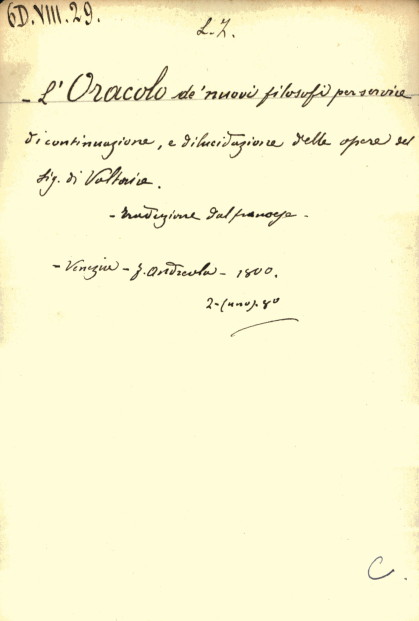 6D.VIII.29.
L.Z.
- L'Oracolo de' nuovi filosofi per servire
di continuazione, e dilucidazione delle opere del
Sig. di Voltaire.
- traduzione dal francese -
- Venezia - F. Andreola - 1800.
2 - (uno). 8º
C.